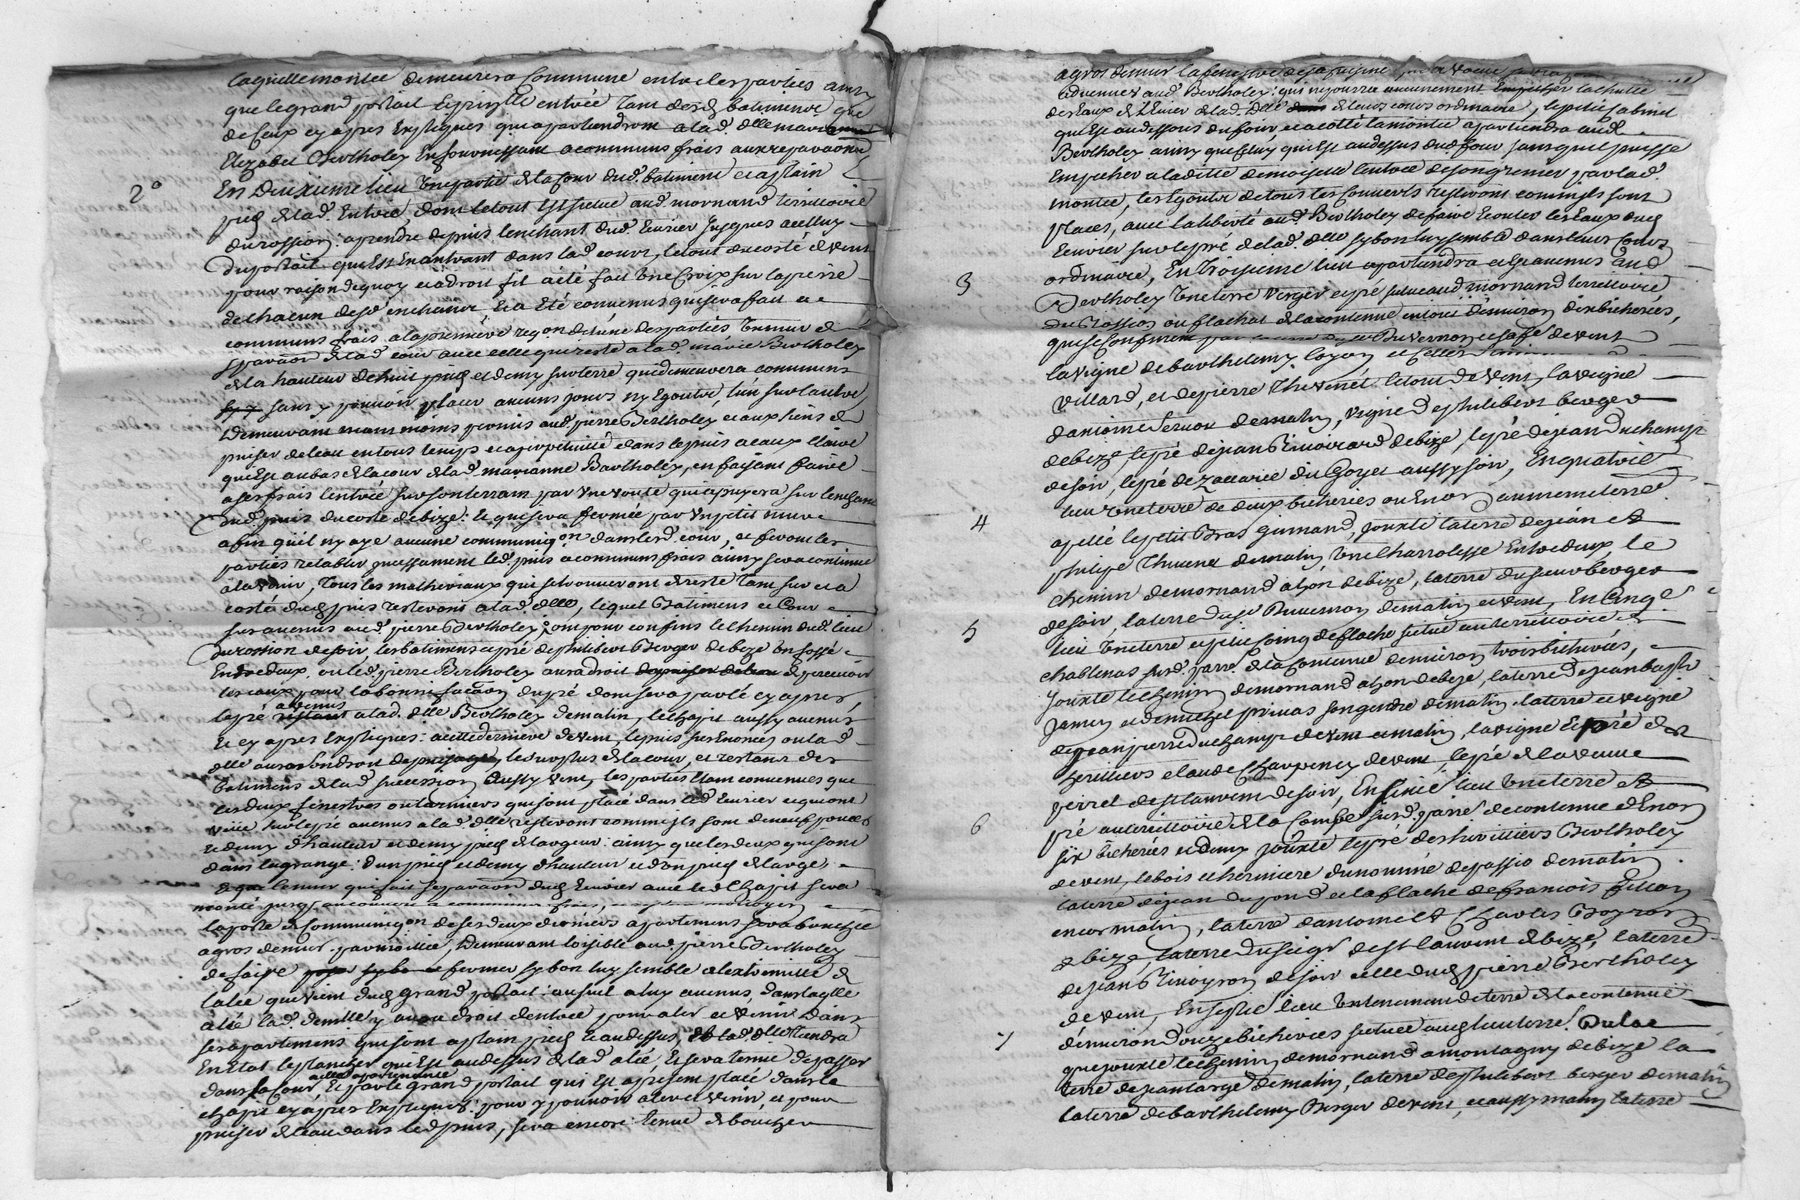 laquelle montée demeurera commune entre les parties ainsy
que le grand portail et principalle entrée tant desd. batiments que
de ceux cy apres expliqués qui apartiendront a lad. dlle marianne
Elizabet Bertholey en fournissant a communs frais aux reparaõns
2° En deuxieme lieu une partie de la cour dud. batiment et a plain
pied de lad. entrée dont le tout est situé aud. mornand territoire
du rosson, a prendre depuis l'enchant dud. Ecurier jusques a celluy
du portail qui est en entrant dans lad. cour, le tout du costé de vent
pour raison de quoy et a droit fil a été fait une croix sur la pierre
de chacun desd. enchants, et a été convenus qu'il sera fait a
communs frais a la premiere reqõn de l'une des parties un mur de
separaõn de lad. cour avec celle qui reste a lad. marie Bertholey
de la hauteur de huit pieds et demy sur terre qui demeurera commun
sans y pouvoir placer aucuns jours ny egouts l'un sur l'autre
demeurant neanmoins permis aud. pierre Bertholey et aux siens de
puiser de l'eau en tous temps et a perpetuité dans le puis a eaux claire
qui est au bas de la cour de lad. marianne Bertholey, en faisant faire
a ses frais l'entrée sur son terrain par une voute qui apuyera sur l'enchant
dud. puis du costé de bize: et qui sera fermée par un petit mur
afin qu'il ny aye aucune communicõn dans lesd. cour, et feront les
parties retablir incessament led. puis a communs frais ainsy sera continué
a l'avenir, tous les matheriaux qui se trouveront de reste tant sur et a
costé dud. puis resteront a lad. dlle, lequel batiment et cour
sus avenus aud. pierre Bertholey, ont pour confins le chemin dud. lieu
du rosson de soir, les batiments et pré de philibert Berger de bize un fossé
entre deux, ou led. pierre Bertholey aura droit de puiser de l'eau de percevoir
les eaux pour l'abonnissaon du pré dont sera parlé cy apres,
avenus
le pré restant a lad. dlle Bertholey de matin, le chapit aussy avenus
et cy apres expliqués: a cette derniere de vent, le puis sus enoncé ou lad.
dlle aura son droit de puisage, le surplus de la cour, et restant des
batiments de lad. succession aussy vent, les parties etant convenues que
les deux fenestres ou larmiers qui sont placé dans led. Ecurier et qui ont
veüe sur le pré avenus a lad. dlle resteront comme ils sont de neuf pouces
et demy d'hauteur et demy pied de largeur: ainsy que les deux qui sont
dans la grange: d'un pied et demy d'hauteur et d'un pied de large,
le mur qui fait separaõn dud. Ecurier avec led. chapit sera
monté jusqu'au couvert a communs frais,
la porte de communicõn de ces deux derniers apartements sera bouchée
a gros de mur par moitié, demeurant loisible aud. pierre Bertholey
de faire fermer sy bon luy semble a l'extremité de
l'alée qui vient dud. grand portail: au suil a luy avenus, dans laqlle
alée lad. demlle y aura droit d'entrée pour aler et venir dans
ses apartements qui sont a plain pied et au dessus, et lad. dlle tiendra
en etat le plancher qui est au dessus de lad. alée, et sera tenue de passer
a elle apartenante
dans sa cour, et par le grand portail qui est a present placé dans le
chapit cy apres expliqué: pour y pouvoir aler et venir, et pour
puiser de l'eau dans led. puis, sera encore tenue de boucher
a gros de mur la fenestre
et devenus aud. Bertholey: qui ne pourra aucunement empecher la chutte
des eaux de l'evier de lad. dlle de leurs cours ordinaire, le petit cabinet
qui est au dessous du four et a costé la montée apartiendra aud.
Bertholey ainsy que celuy qui est au dessus dud. four, sans qu'il puisse
empecher a laditte demoiselle l'entrée de son grenier par lad.
montée, les egouts de tous les couverts resteront comme ils sont
placés, avec la liberté aud. Bertholey de faire ecouler les eaux dud.
Ecurier sur le pré de lad. dlle sy bon luy semble dans leurs cours
3 ordinaire, En troisieme lieu apartiendra et est avenus aud.
Bertholey une terre verger et pré situé aud. mornand territoire
du Rosson ou flachat de la contenue entour d'environ dix bicherées,
qui se confinent par du Vernon et fossé de vent
la vigne de barthelemy loyon et celle
villard, et de pierre Thevenet le tout de vent, la vigne
d'antoine servan de matin, vigne de philibert berger
de bize, le pré de jean Thivoirard de bize, le pré de jean duchamps
de soir, le pré de zaccarie du Goyet aussy soir, En quatrie
4 lieu une terre de deux bicherées ou environ au meme terre.
apellé le petit Bras guinand, jouxte la terre de jean et
philipe Thivene de matin, une charrolesse entre deux, le
chemin de mornand a lyon de bize, la terre du sieur berger
de soir, la terre dud. Duvernon de matin et vent, En cinqe.
5 lieu une terre et petit coing de flache situé au territoire de
chablenas sur d. parre. de la contenue d'environ trois bicherées,
jouxte le chemin de mornand a lyon de bize, la terre de jean bapte
jamen et de michel primas son gendre de matin, la terre et vigne
de jean pierre duchamp de vent et matin, la vigne et pré des
heritiers claude Charvency de vent, le pré de la veuve
perret de st laurent de soir, En sixie. lieu une terre et
6 pré au territoire de la Combe sur d. parre. de contenue d'environ
six bicherées et demy jouxte le pré des heritiers Bertholey
de vent, le bois et hermiere du nommé depassio de matin
la terre de jean dupond et la flache de francois fillion
encor matin, la terre d'antoine et Charles Boiron
de bize, la terre du seigr. de st laurent de bize, la terre
de jean Thivoyron de soir celle dud. pierre Bertholey
de vent, En septie. lieu un tenement de terre de la contenue
7 d'environ douze bicherées situé aud. lieu terre. Dulac
que jouxte le chemin de mornand a montagny de bize la
terre de jean large de matin, la terre de philibert berger de matin
la terre de barthelemy Berger de vent, et aussy matin la terre